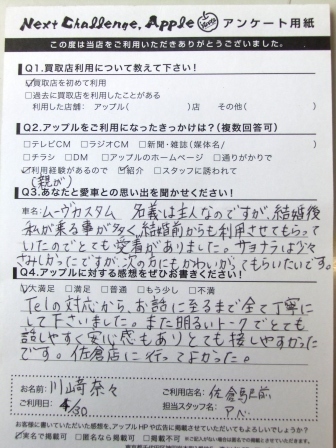 Next Challenge. Apple アンケート用紙
この度は当店をご利用いただきありがとうございました。
Q1.買取店利用について教えて下さい!
☑買取店を初めて利用
□過去に買取店を利用したことがある
利用した店舗: アップル( )店 その他( )
Q2.アップルをご利用になったきっかけは?(複数回答可)
□テレビCM □ラジオCM □新聞・雑誌(媒体名/ )
□チラシ □DM □アップルのホームページ □通りがかりで
☑利用経験があるので ☑紹介 □スタッフに誘われて
(親が)
Q3.あなたと愛車との思い出を聞かせください!
車名: ムーヴカスタム 名義は主人なのですが、結婚後
私が乗る事が多く、結婚前からも利用させてもらっ
ていたのでとても愛着がありました。サヨナラは少々
さみしかったですが次の方にもかわいがってもらいたいです。
Q4.アップルに対する感想をぜひお書きください!
☑大満足 □満足 □普通 □もう少し □不満
Telの対応から、お話に至るまで全て丁寧に
して下さいました。また明るいトークでとても
話しやすく安心感もありとても接しやすかった
です。佐倉店に行ってよかった。
お名前: 川崎奈々 ご利用店名: 佐倉駅前
ご利用日: 4/30 担当スタッフ名: アベ
お客様に書いていただいた感想を、アップルHPや広告に掲載させていただいてもよろしいでしょうか?
☑実名で掲載可 □匿名なら掲載可 □掲載不可